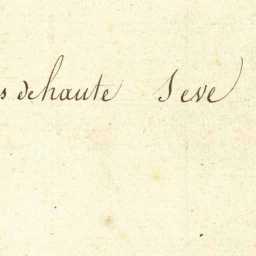 s de haute Seve